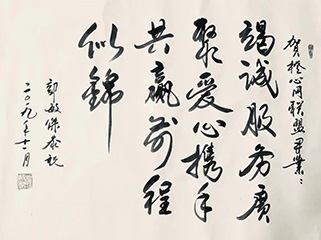 贺橙心同联盟开业：
竭诚服务广
聚爱心携手
共赢前程
似锦
郭敏杰敬祝
二〇一九年十一月